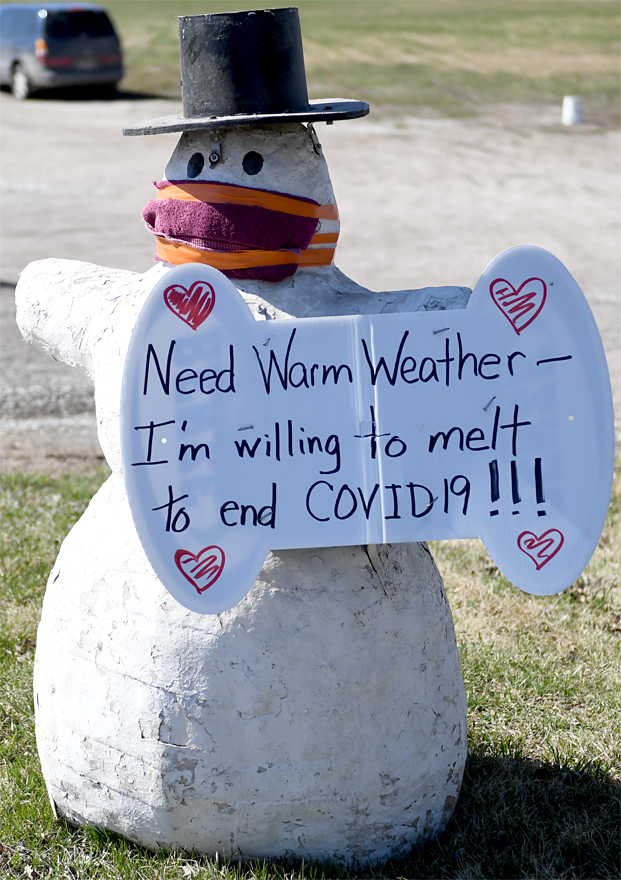 Need Warm Weather –
I'm willing to melt
to end COVID19!!!